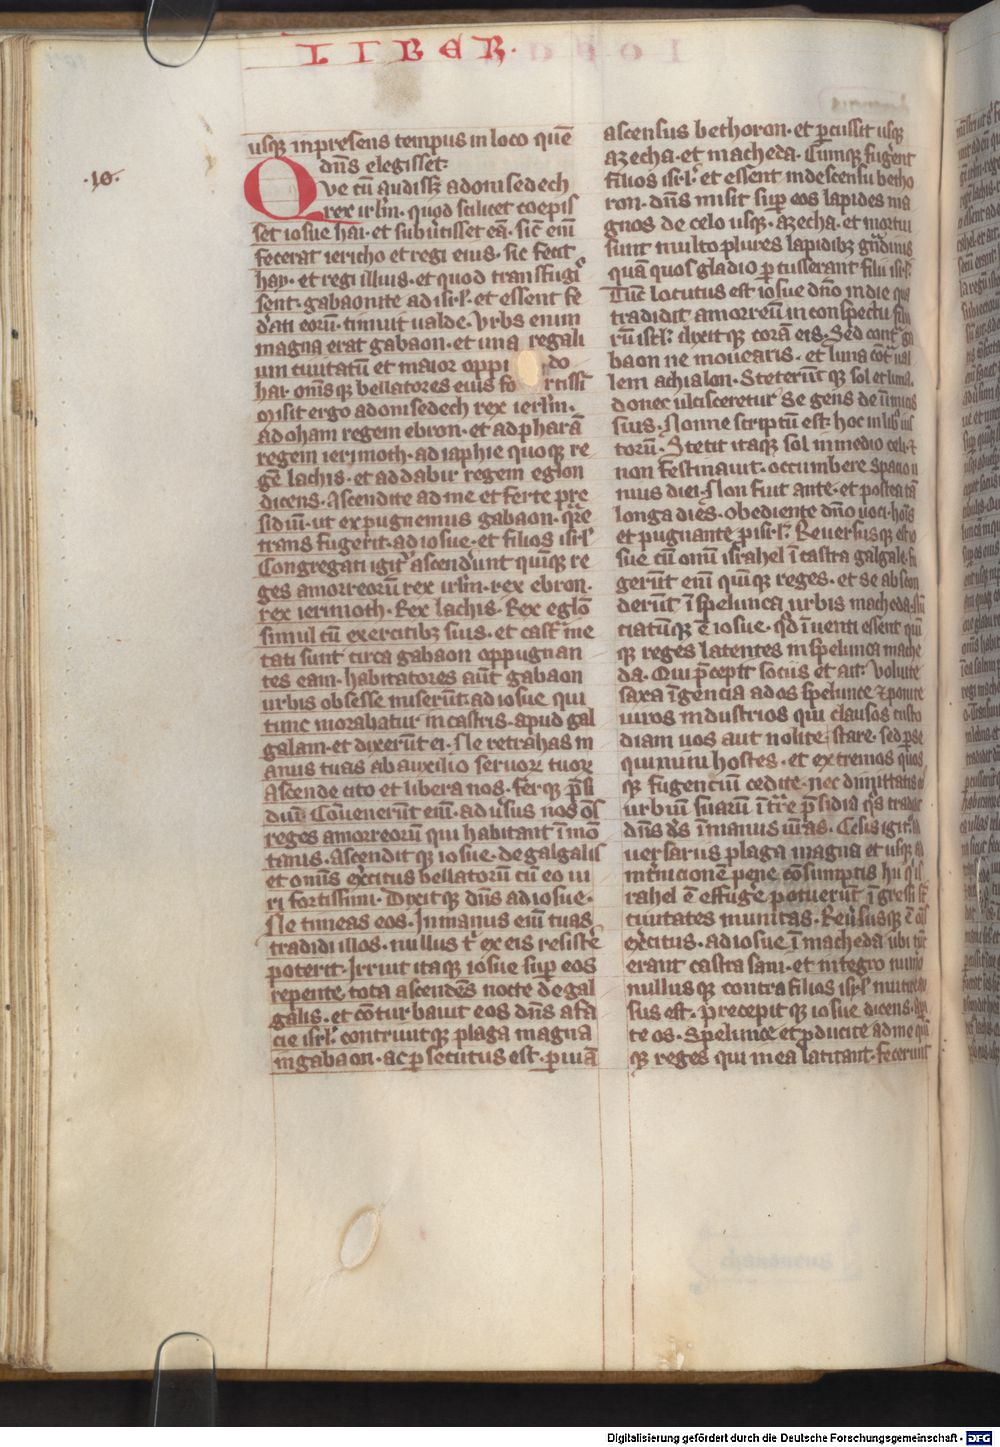 LIBER.
.10.
usqꝫ inpresens tempus in loco quē
dn̄s elegisset.
Que cū audissꝫ adonisedech
rex irl̄m. quod scilicet coepis
set iosue hai. et subuertisset eā. sic̄ eni̅
fecerat iericho et regi eius. sic fecit
hay. et regi illius. et quod transfugi
sent. gabaonite ad isrl̄. et essent fe
derati eorū. timuit ualde. Vrbs enim
magna erat gabaon. et una regali
um ciuitatū et maior oppido
hai. om̄s qꝫ bellatores eius fortissi
misit ergo adonisedech rex ierl̄m.
ad oham regem ebron. et ad pharā
regem ierimoth. ad iaphie quoqꝫ re
gē lachis. et ad dabir regem eglon
dicens. Ascendite ad me et ferte pre
sidiū. ut expugnemus gabaon. qr̄e
transfugerit. ad iosue. et filios isrl̄
Congregati igit᷑ ascenderunt quinqꝫ re
ges amorreorū rex irl̄m. rex ebron.
rex ierimoth. Rex lachis. Rex eglō
simul cū exercitibꝫ suis. et castrame
tati sunt circa gabaon oppugnan
tes eam. habitatores aūt gabaon
urbis obsesse miserūt. ad iosue qui
tunc morabatur in castris. apud gal
galam. et dixerūt ei. Ne retrahas m
anus tuas ab auxilio seruoꝝ tuoꝝ
Ascende cito et libera nos. ferqꝫ p̄si
diū. Conuenerūt eni̅. aduersus nos om̄s
reges amorreorū qui habitant ī mō
tanis. Ascendit qꝫ iosue. de galgalis
et omnis exercitus bellatorū cū eo ui
ri fortissimi. Dixitqꝫ dn̄s ad iosue.
Ne timeas eos. In manus eni̅ tuas
tradidi illos. nullus t ex eis resistere
poterit. Irruit itaqꝫ iosue super eos
repente tota ascendēs nocte de gal
galis. et cōturbauit eos dn̄s a fa
cie isrl̄. contriuit qꝫ plaga magna
in gabaon. ac persecutus est. per uiā
ascensus bethoron. et percussit usqꝫ
azecha. et maceda. Cumqꝫ fugerent
filios isrl̄. et essent in descensu betho
ron. dn̄s misit super eos lapides ma
gnos de celo usqꝫ. azecha. et mortui
sunt multo plures lapidibꝫ grandinis
quā quos gladio percusserant filii isrl̄.
Tūc locutus est iosue dn̄o in die qua
tradidit amorreū in conspectu filio
rū isrl̄. dixit qꝫ corā eis. Sed contra ga
baon ne mouearis. et luna cōt ual
lem achialon. Steterūt qꝫ sol et luna.
donec ulcisceretur se gens de inimicis
suis. Nonne scriptū est. hoc in libro ius
torū. Stetit itaqꝫ sol in medio celi. et
non festinauit. occumbere spacio u
nius diei. Non fuit ante. et postea tā
longa diēs. obediente dn̄o uoci. hoīs
et pugnante pro isrl̄. Reuersusqꝫ est io
sue cū omni israhel ī castra galgale. fu
gerūt eni̅ quinqꝫ reges. et se abscon
derūt ī spelunca urbis maceda. nūn
ciatūqꝫ ē iosue. qd̄ īuenti essent quin
qꝫ reges latentes in spelunca mache
da. Qui p̄cepit sociis et ait. Voluite
saxa īgencia ad os spelunce et ponite
uiros industrios qui clausos custo
diam uos aut nolite stare. sed perse
quimini hostes. et extremos quos
qꝫ fugenciū cedite. nec dimittatis
urbiū suarū ītrare p̄sidia qs̄ tradidit
dn̄s ds̄ ī manus ur̄as. Cesis igit᷑ ad
uersariis plaga magna et usqꝫ ad
internicionē pene cōsumptis hii qui is
rahel ē effugere potuerūt ī gressi st̄
ciuitates munitas. Reuersusqꝫ ē om̄s
exercitus. ad iosue ī maceda ubi tūc
erant castra sani. et integro numero
nullus qꝫ contra filios isrl̄ mutire au
sus est. precepit qꝫ iosue dicens. Aperi
te os. Spelunce et producite ad me quin
qꝫ reges qui in ea latitant. fecerunt
Digitalisierung gefördert durch die Deutsche Forschungsgemeinschaft - DFG